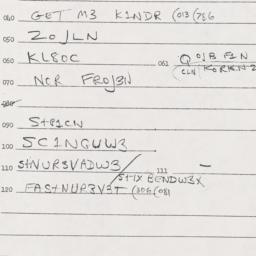 040 GET M3 K1NDR (013(786
050 ZOJLN
060 KL8OC
061 QOJB F1N
(CLN KORKN2
070 NCR FROJ3N
080
090 St81CN
100 SC1NGUW3
110 StNUR3VADW3/
111 —
StIX BENDW3X
120 FAStNUR3V3T (306(081